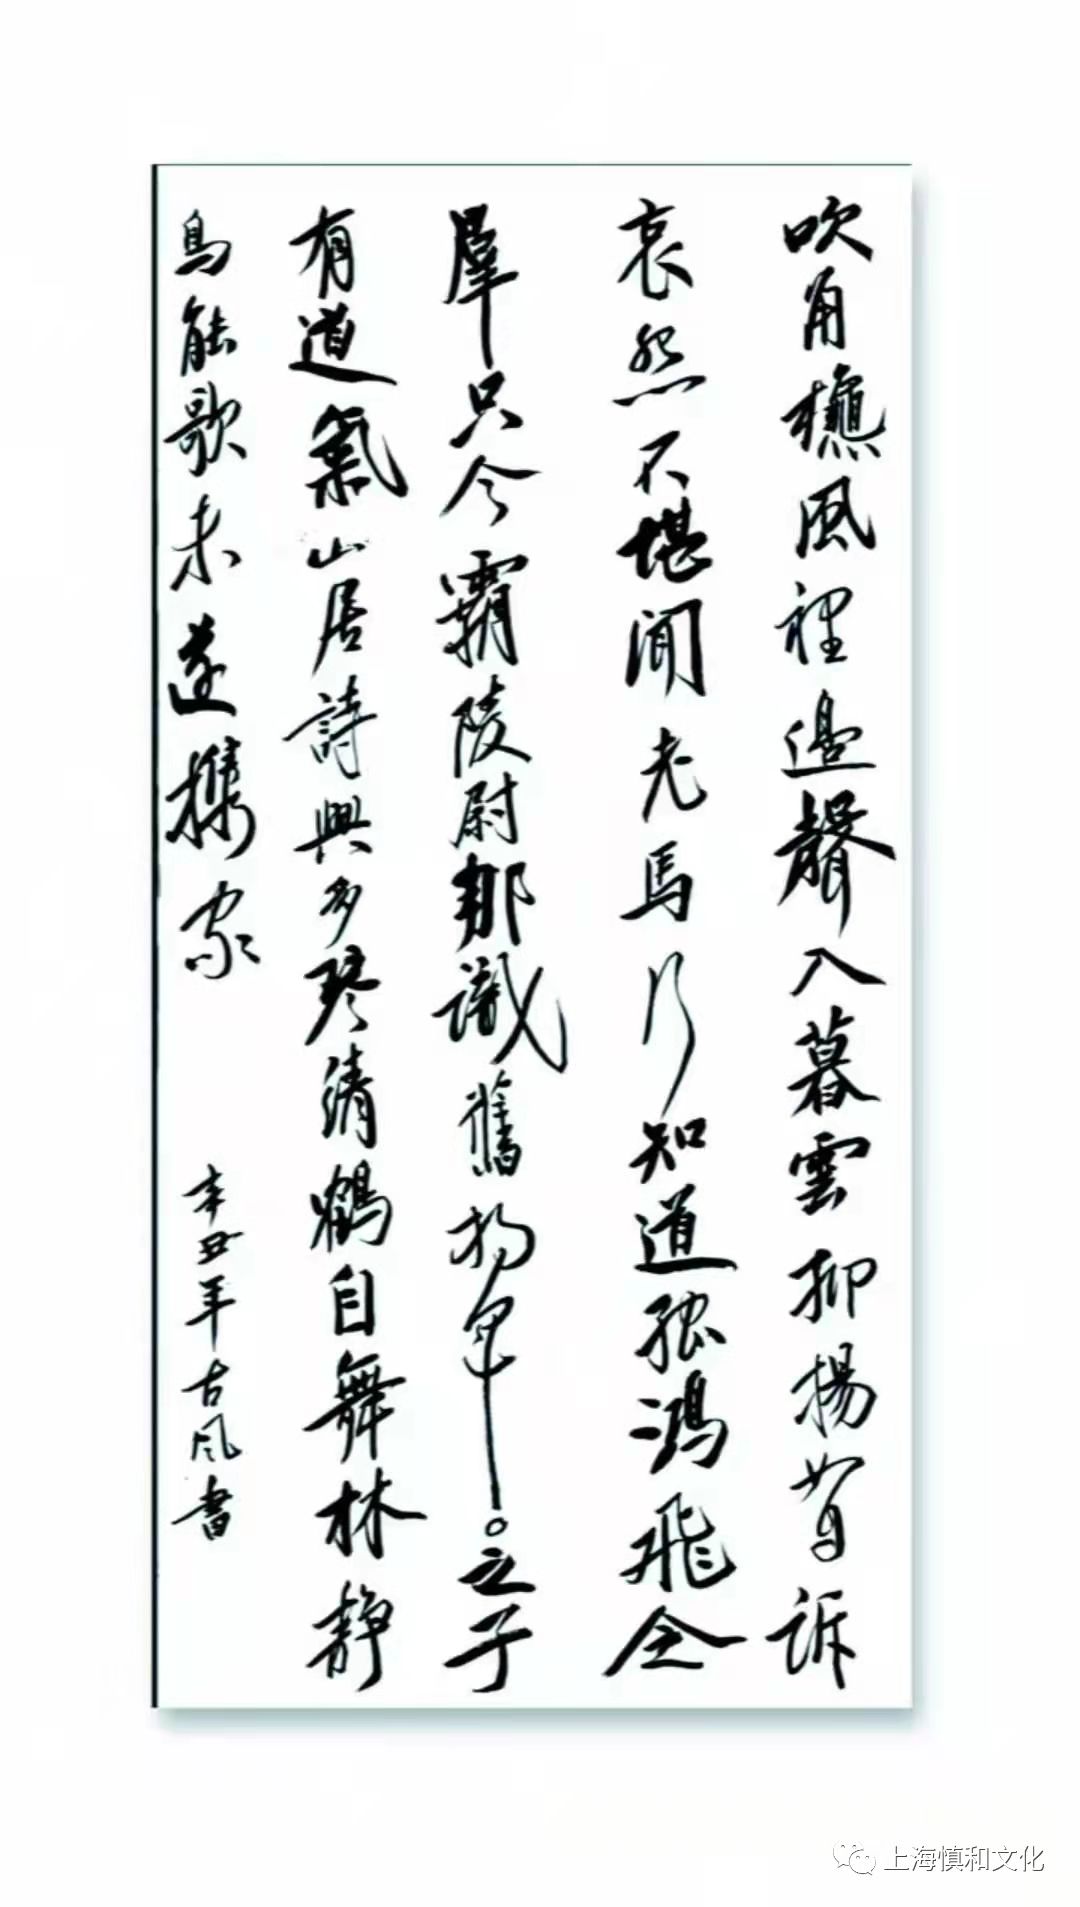 吹角樵風裡邊聲入暮雲抑揚皆訴
哀怨不堪聞老馬行知道孤鴻飛念
羣只今霸陵尉那識舊將軍。之子
有道氣山居詩興多琴清鶴自舞林靜
鳥能歌未遂攜家
辛丑年古風書
上海慎和文化